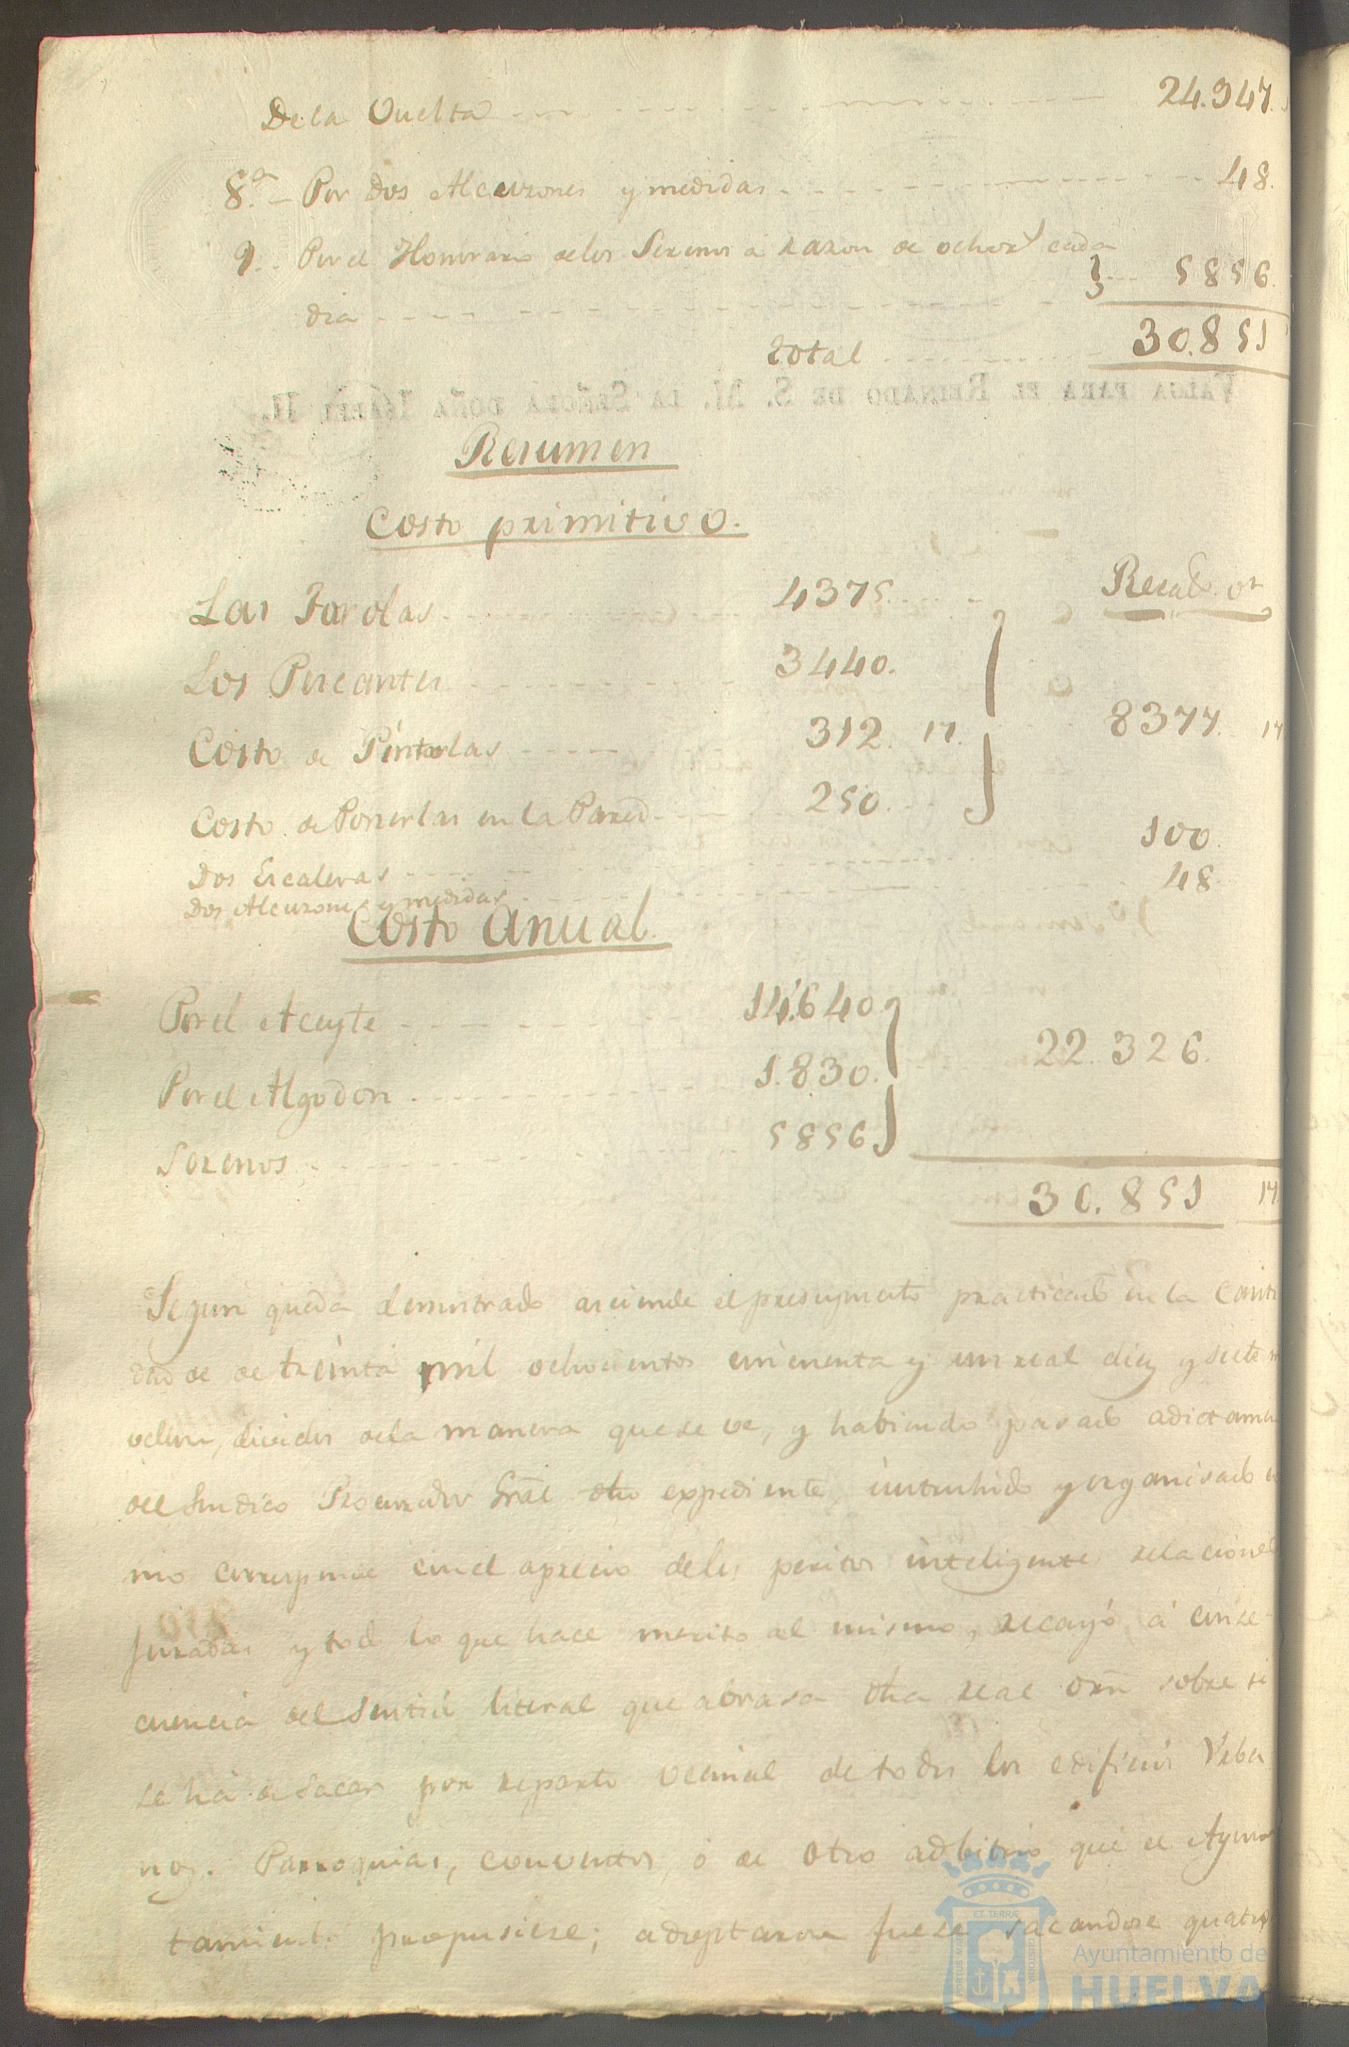 De la Vuelta 24.347.
8.ª Por Dos Alcuzones y medidas 48.
9. Por el Honorario de los Serenos á razon de ocho r.^s cada
dia 5856.
total 30.851
VALGA PARA EL REINADO DE S. M. LA SEÑORA DOÑA ISABEL II.
Resumen
Costo primitivo.
R.^s de v.^n
Las Farolas 4375.
Los Pescantes 3440.
Costo de Pintarlas 312. 17. 8377. 17
Costo de Ponerlas en la Pared 250.
Dos Escaleras 100.
Dos Alcuzones y medidas 48.
Costo Anual.
Por el Aceyte 14.640
Por el Algodon 1.830. 22.326.
Serenos 5856
30.851 17
Segun queda demostrado asciende el presupuesto practicado en la canti
dad de de treinta mil ochocientos cincuenta y un real diez y siete m
vellon, dividos de la manera que se ve, y habiendo pasado a dictamen
del Sindico Procurador Gral dho expediente instruhido y organisado
mo corresponde con el aprecio de los peritos inteligentes relaciones
Juradas y todo lo que hace merito al mismo, recayó á conse-
cuencia del sentido literal que abrasa dha real orn sobre si
se há de sacar por reparto vecinal de todos los edificios Urba
nos. Parroquias, conventos, ó de otro adbitrio que el Ayun
tamiento propusiere; adoptaron fuese sacandose quatro
ET TERRÆ
PORTUS MARIS
CUSTODIA
Ayuntamiento de
HUELVA